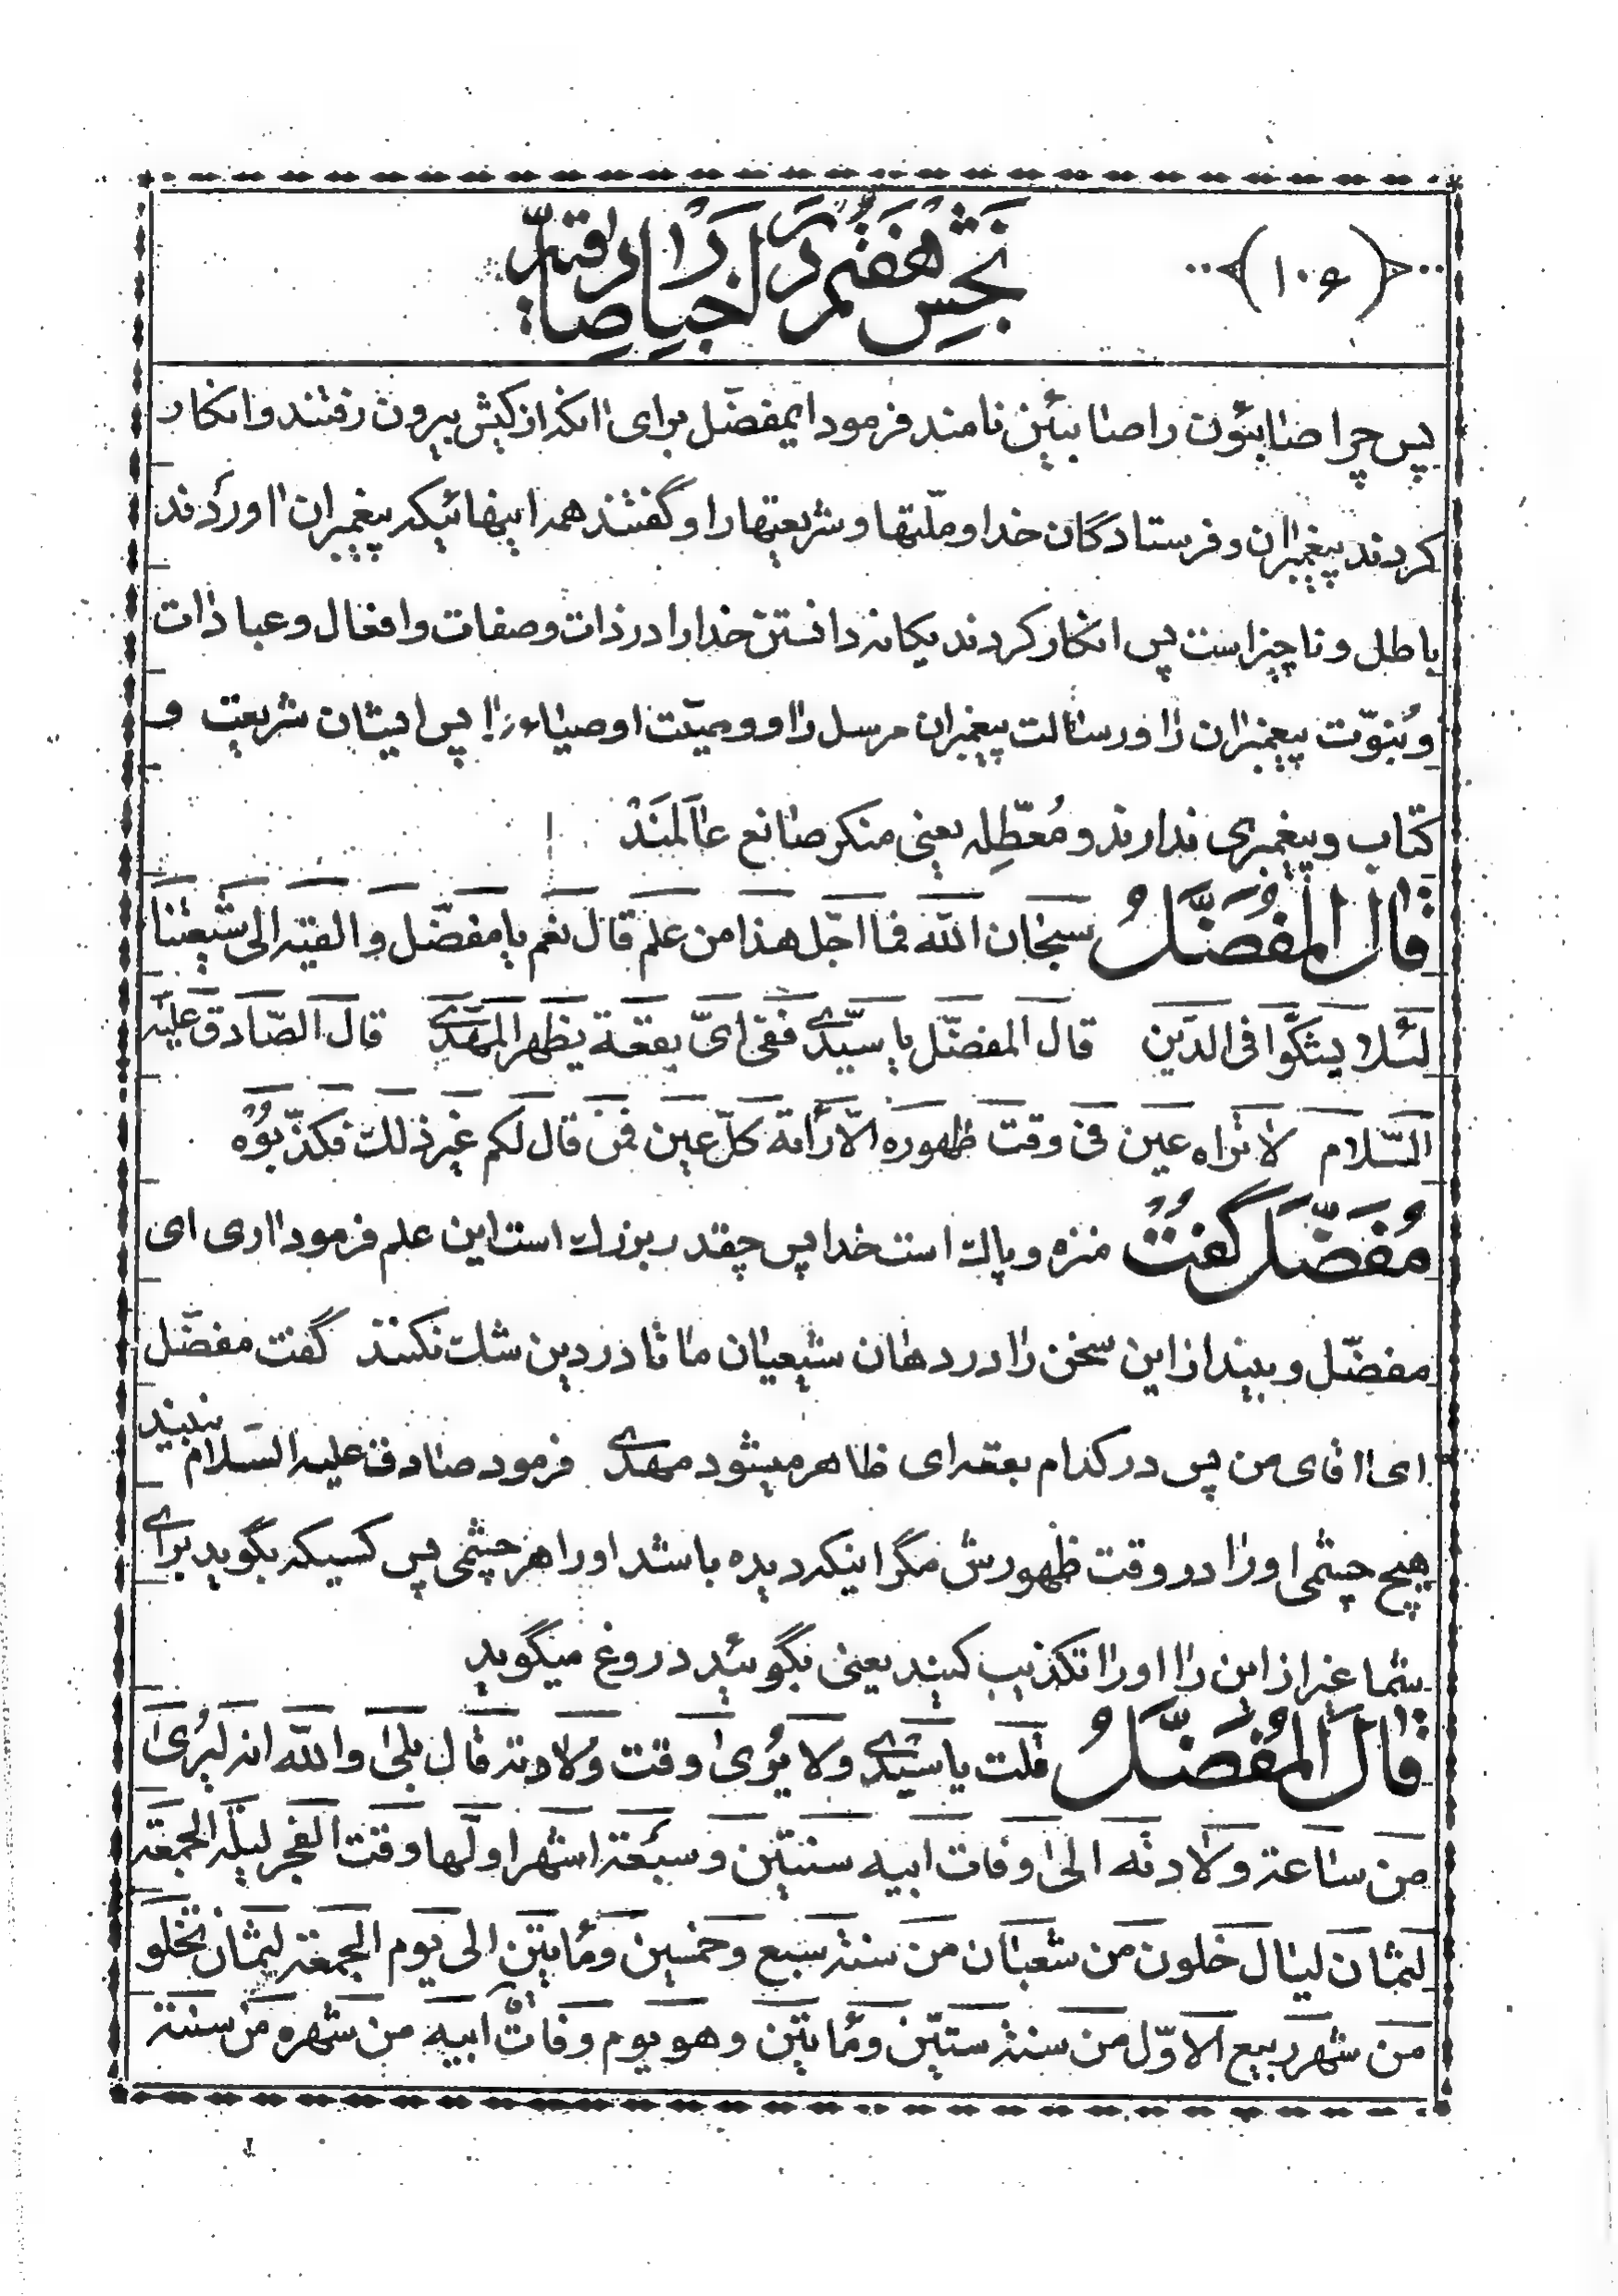 (۱۰۶)
بخش هفتم در اخبار صادقیّه
پس چرا صابئون را صابئین نامند فرمود ایمفضّل برای آنکه از کیش بیرون رفتند و انکار
کردند پیغمبران و فرستادگان خدا و ملّتها و شریعتها را و گفتند همه اینهائیکه پیغمبران آوردند
باطل و ناچیز است پس انکار کردند یکانه دانستن خدا را در ذات و صفات و افعال و عبادات
و نبوّت پیغمبران را و رسالت پیغمبران مرسل را و وصیّت اوصیاء را پس ایشان شریعت و
کتاب و پیغمبری ندارند و مُعطِّله یعنی منکر صانع عالَمَند
قال المُفضَّلُ سبحان الله فما اجلّ هذا من علم قال نعم یا مفضّل و القیه الی شیعتنا
لئلا یشکّوا فی الدین قال المفضّل یا سیّدی ففی ایّ بقعة یظهر المهدی قال الصّادق علیه
السّلام لا تراه عین فی وقت ظهوره الّا رأته کلّ عین فمن قال لکم غیر ذلک فکذّبوُه
مُفضّل گفت منزه و پاک است خدا پس چقدر بزرک است این علم فرمود آری ای
مفضّل و بینداز این سخن را در دهان شیعیان ما تا در دین شک نکنند گفت مفضّل
ای آقای من پس در کدام بقعه‌ای ظاهر میشود مهدی فرمود صادق علیه السّلام نبیند
هیچ چشمی او را در وقت ظهورش مگر اینکه دیده باشد او را هر چشمی پس کسیکه بگوید برای
شما غیر از این را او را تکذیب کنید یعنی بگوئید دروغ میگوید
قالَ المُفضَّلُ قلت یا سیّدی ولا یُری وقت ولادته قال بلی والله انه لیُری
من ساعة ولادته الی وفات ابیه سنتین و سبعة اشهر اولها وقت الفجر لیلة الجمعة
لثمان لیال خلون من شعبان من سنة سبع و خمسین و مأتین الی یوم الجمعة لیثمان نخلو
من شهر ربیع الاوّل من سنة ستّین و مأتین و هو یوم وفات ابیه من شهره من سنة